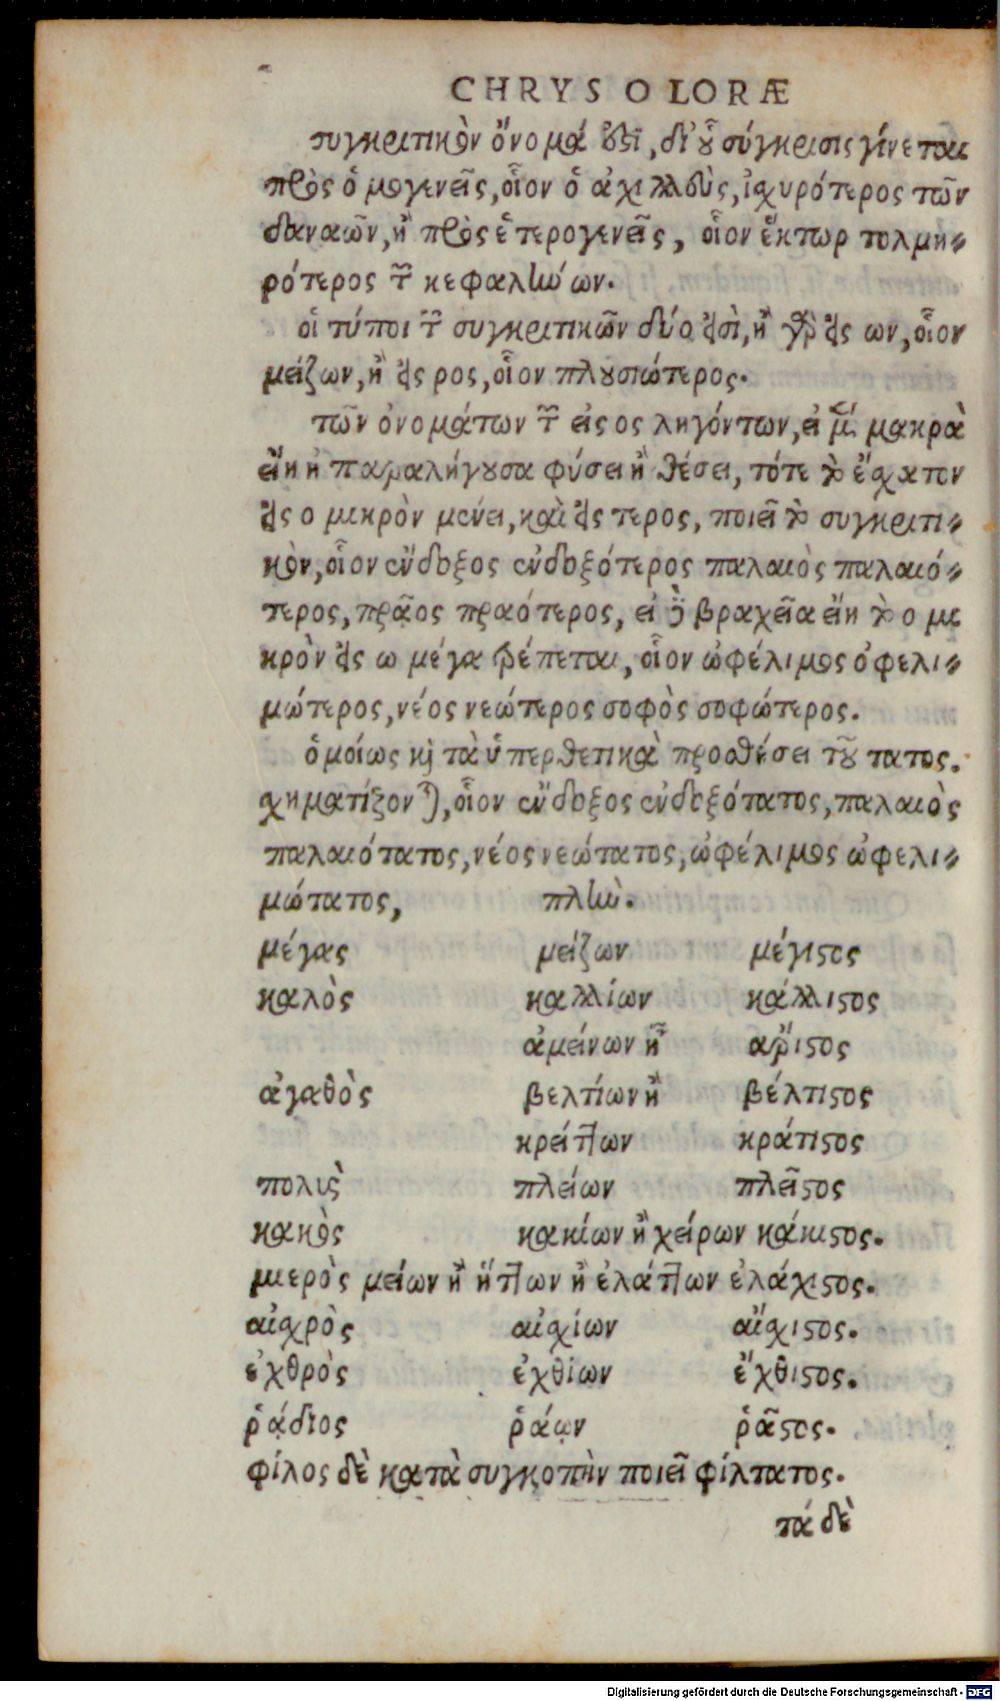 CHRYSOLORÆ
συγκριτικὸν ὄνομά ἐστι, δι' οὗ σύγκρισις γίνεται
πρὸς ὁμογενεῖς, οἷον ὁ ἀχιλλεὺς, ἰσχυρότερος τῶν
δαναῶν, ἢ πρὸς ἑτερογενεῖς, οἷον ἕκτωρ τολμη-
ρότερος τῶν κεφαλήνων.
οἱ τύποι τῶν συγκριτικῶν δύο εἰσὶ, ἢ γὰρ εἰς ων, οἷον
μείζων, ἢ εἰς ρος, οἷον πλουσιώτερος.
τῶν ὀνομάτων τῶν εἰς ος ληγόντων, εἰ μὲν μακρὰ
εἴη ἡ παραλήγουσα φύσει ἢ θέσει, τότε τὸ ἔσχατον
εἰς ο μικρὸν μένει, καὶ εἰς τερος, ποιεῖ τὸ συγκριτι-
κὸν, οἷον ἔνδοξος ἐνδοξότερος παλαιὸς παλαιό-
τερος, πρᾷος πραότερος, εἰ δὲ βραχεῖα εἴη τὸ ο μι
κρὸν εἰς ω μέγα τρέπεται, οἷον ὠφέλιμος ὀφελι-
μώτερος, νέος νεώτερος σοφὸς σοφώτερος.
ὁμοίως καὶ τὰ ὑπερθετικὰ προσθέσει τοῦ τατος.
σχηματίζονται, οἷον ἔνδοξος ἐνδοξότατος, παλαιὸς
παλαιότατος, νέος νεώτατος, ὠφέλιμος ὠφελι-
μώτατος, πλὴν.
μέγας μείζων μέγιστος
καλὸς καλλίων κάλλιστος
ἀμείνων ἢ ἄριστος
ἀγαθὸς βελτίων ἢ βέλτιστος
κρείττων κράτιστος
πολὺς πλείων πλεῖστος
κακὸς κακίων ἢ χείρων κάκιστος.
μικρὸς μείων ἢ ἥττων ἢ ἐλάττων ἐλάχιστος.
αἰσχρὸς αἰσχίων αἴσχιστος.
ἐχθρὸς ἐχθίων ἔχθιστος.
ῥᾴδιος ῥᾴων ῥᾷστος.
φίλος δὲ κατὰ συγκοπὴν ποιεῖ φίλτατος.
τά δὲ
Digitalisierung gefördert durch die Deutsche Forschungsgemeinschaft - DFG